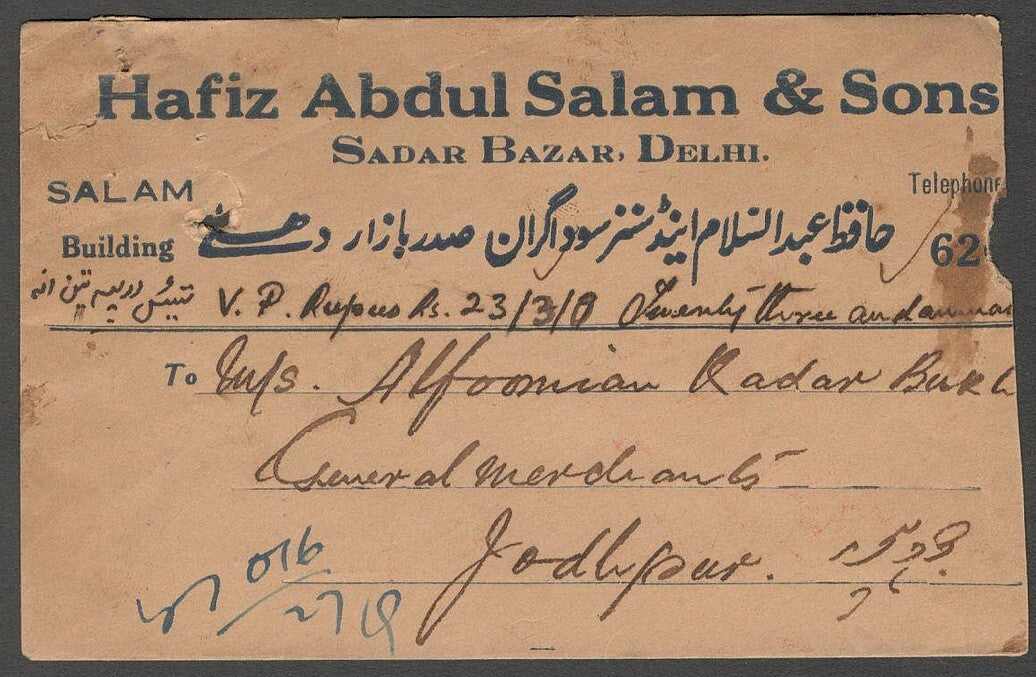 Hafiz Abdul Salam & Sons
SADAR BAZAR, DELHI.
SALAM
Building
Telephone
62
حافظ عبدالسلام اینڈ سنز سوداگران صدر بازار دھلی
V. P. Rupees Rs. 23/3/0 Twenty three and annas
To M/s. Alfoomian Kadar Bukh
General Merchants
Jodhpur.